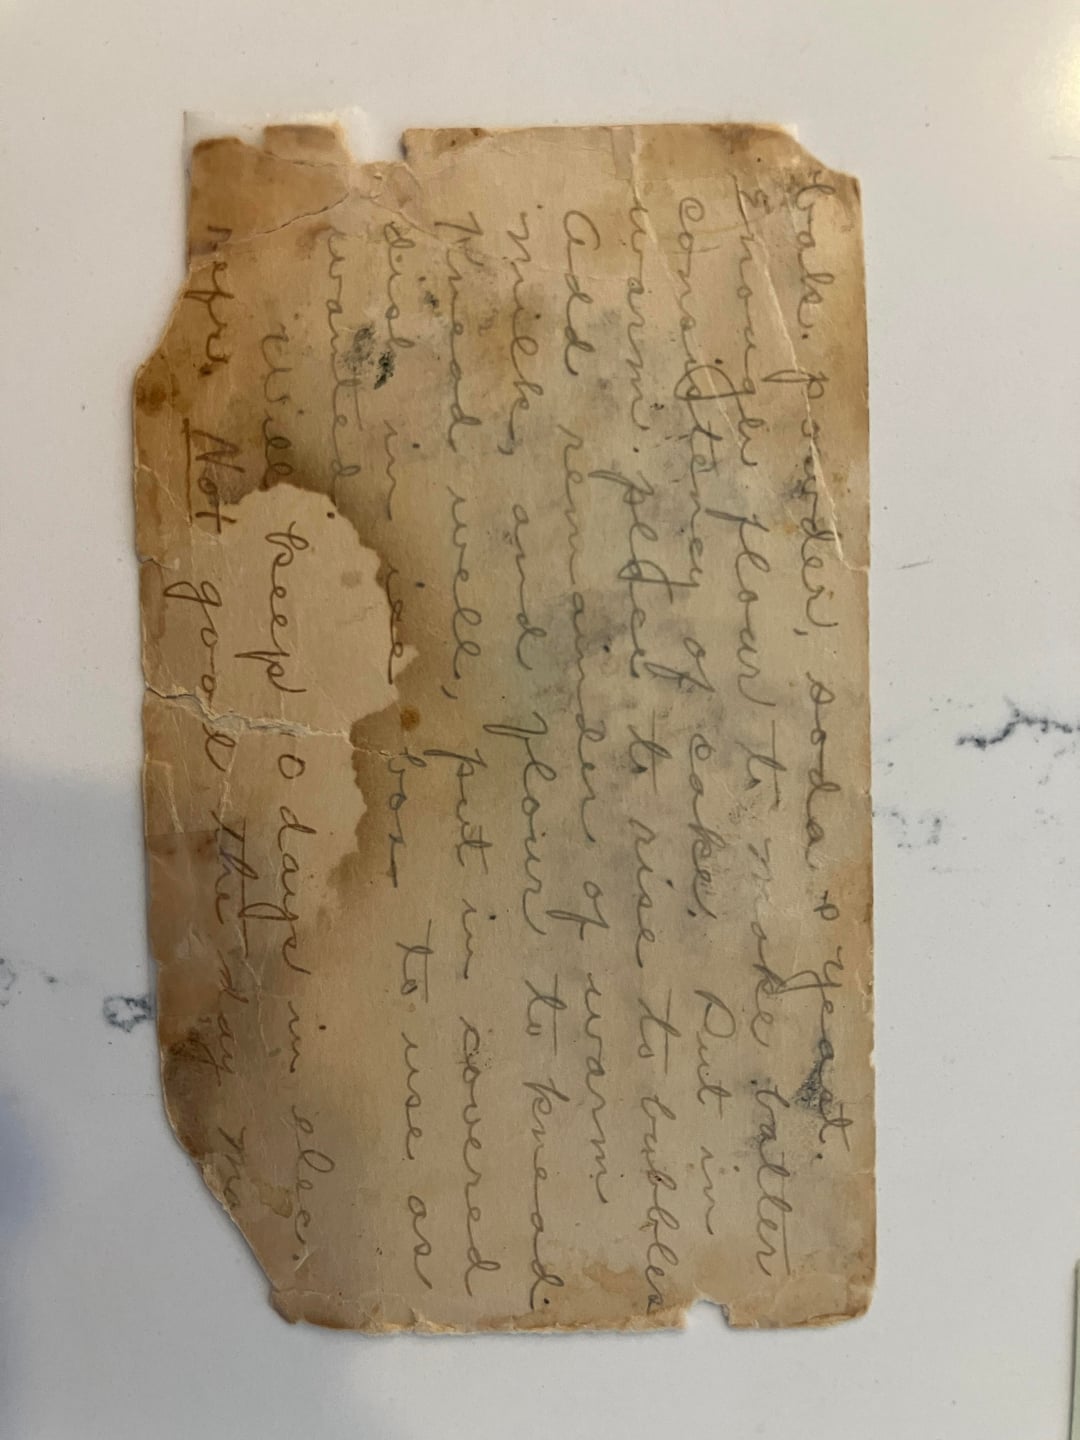 bak. powder, soda & yeast.
Enough flour to make batter
consistency of cake. Put in
warm place to rise to bubbles
Add remainder of warm
milk, and flour to knead.
Knead well, put in covered
dish in ice box to use as
wanted
will keep 10 days in elec.
refr. Not good the day ma